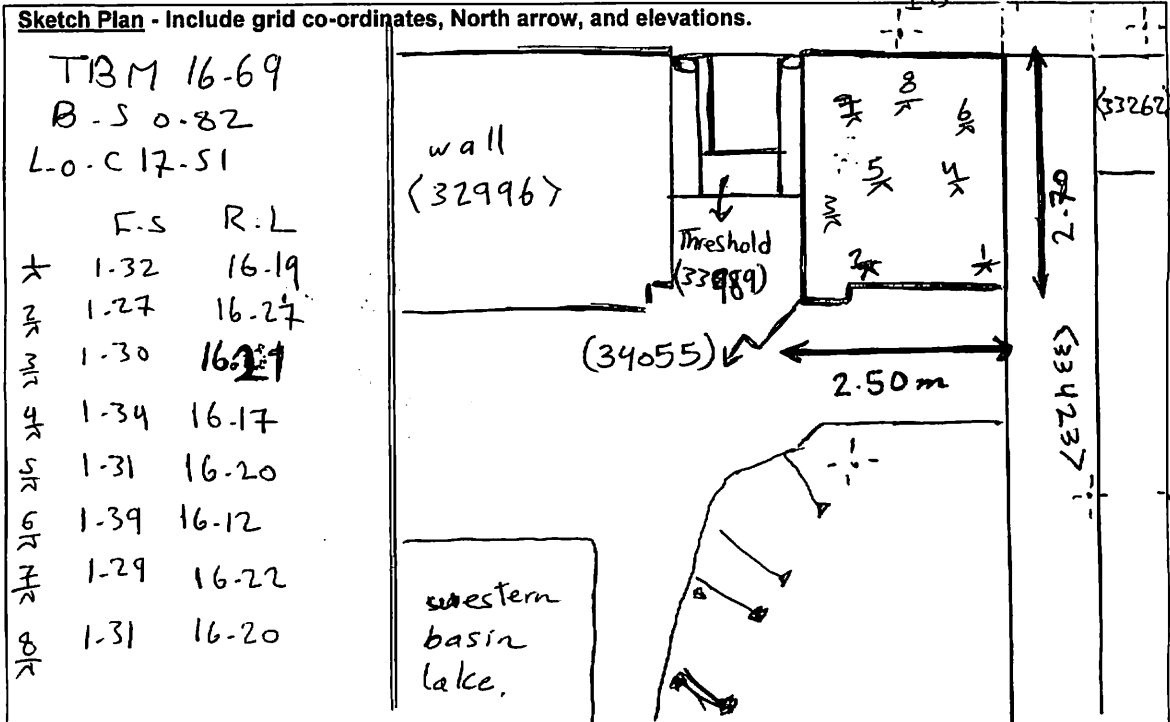 Sketch Plan - Include grid co-ordinates, North arrow, and elevations.
TBM 16-69
B-S 0.82
L-O-C 17-51
F.S R.L
1 1-32 16-19
2 1-27 16-27
3 1-30 16.21
4 1-34 16-17
5 1-31 16-20
6 1-39 16-12
7 1-29 16-22
8 1-31 16-20
wall
(32996)
Threshold
(34055)
2.50m
2.70
(33262)
(334237
7
8
6
5
4
3
2
1
western
basin
lake.